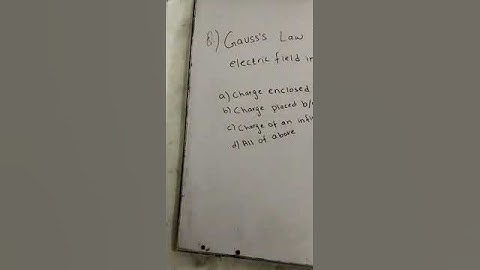 8.) Gauss's Law
electric field in
a) Charge enclosed
b) Charge placed b/
c) Charge of an infi
d) All of above